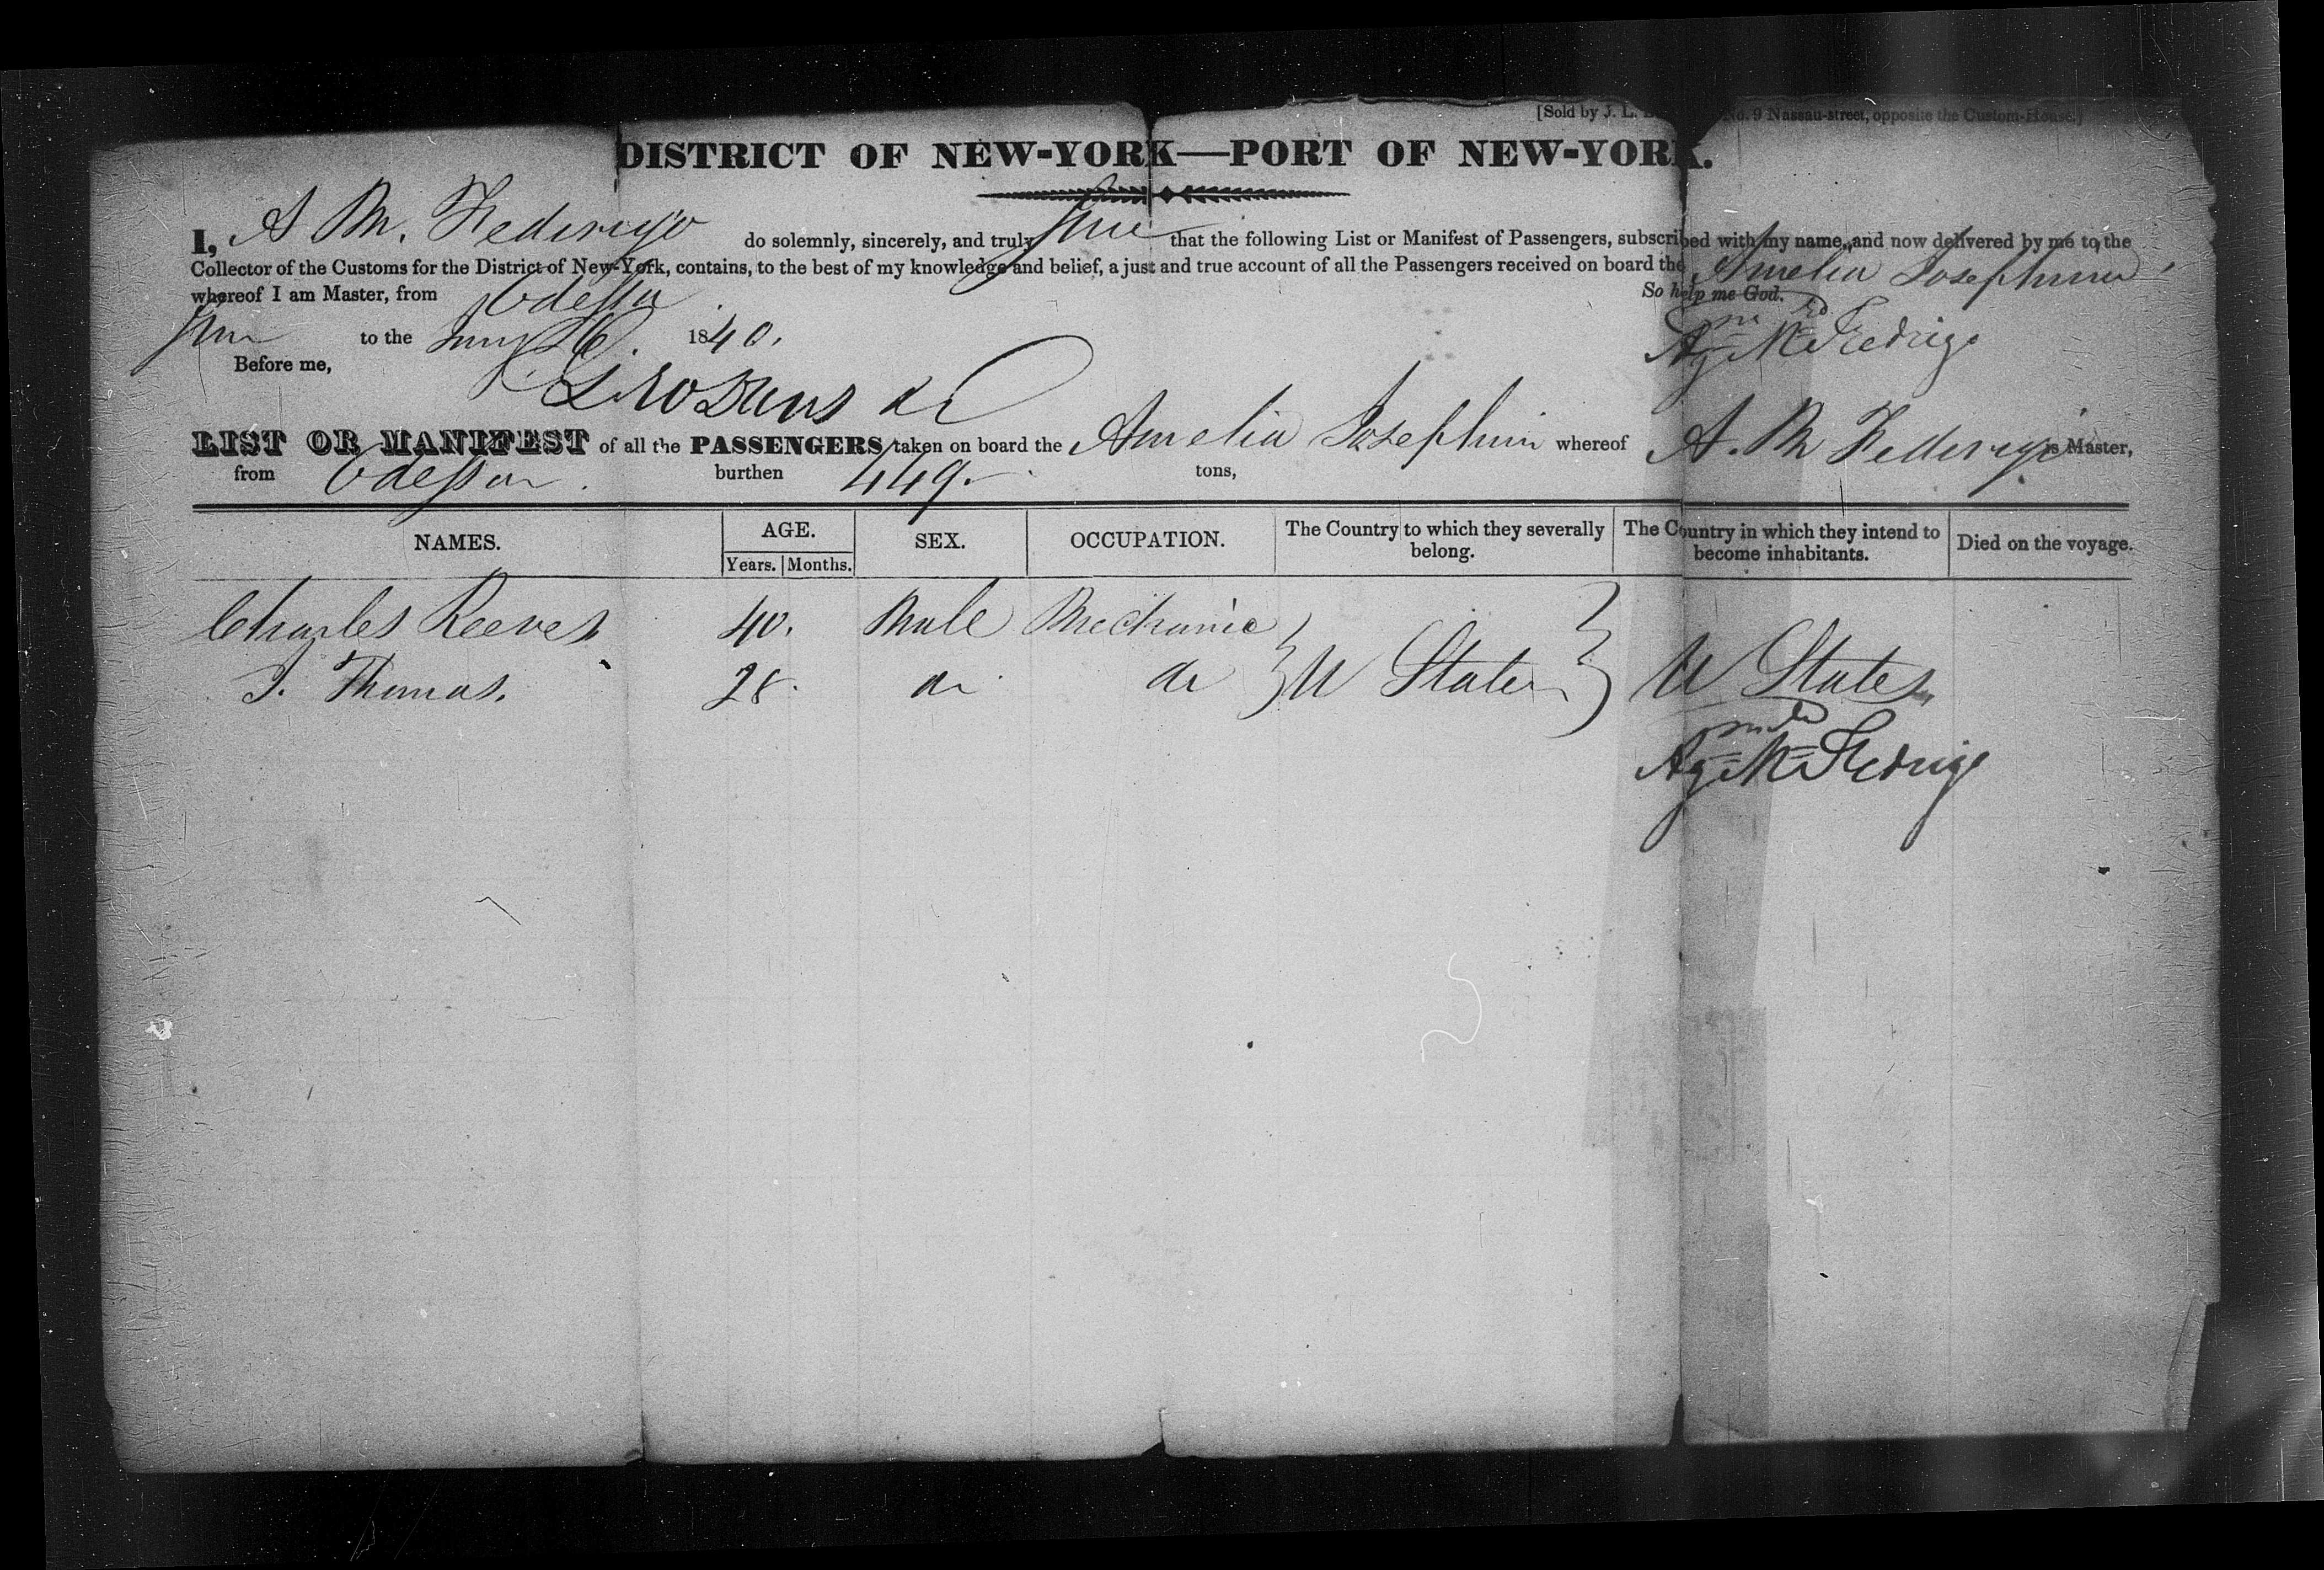 [Sold by J. L. No. 9 Nassau-street, opposite the Custom-House.]
DISTRICT OF NEW-YORK—PORT OF NEW-YORK.
I, A M. Federigo do solemnly, sincerely, and truly that the following List or Manifest of Passengers, subscribed with my name, and now delivered by me to the
Collector of the Customs for the District of New-York, contains, to the best of my knowledge and belief, a just and true account of all the Passengers received on board the Amelia Josephine
whereof I am Master, from Odessa. So help me God.
to the 26. 1840.
Before me,
LIST OR MANIFEST of all the PASSENGERS taken on board the Amelia Josephin whereof A. M Federigo is Master,
from Odessa. burthen 449. tons,
NAMES. AGE. Years. Months. SEX. OCCUPATION. The Country to which they severally belong. The Country in which they intend to become inhabitants. Died on the voyage.
Charles Reeves 40. Male Mechanic
J. Thomas. 28. do do U States U States